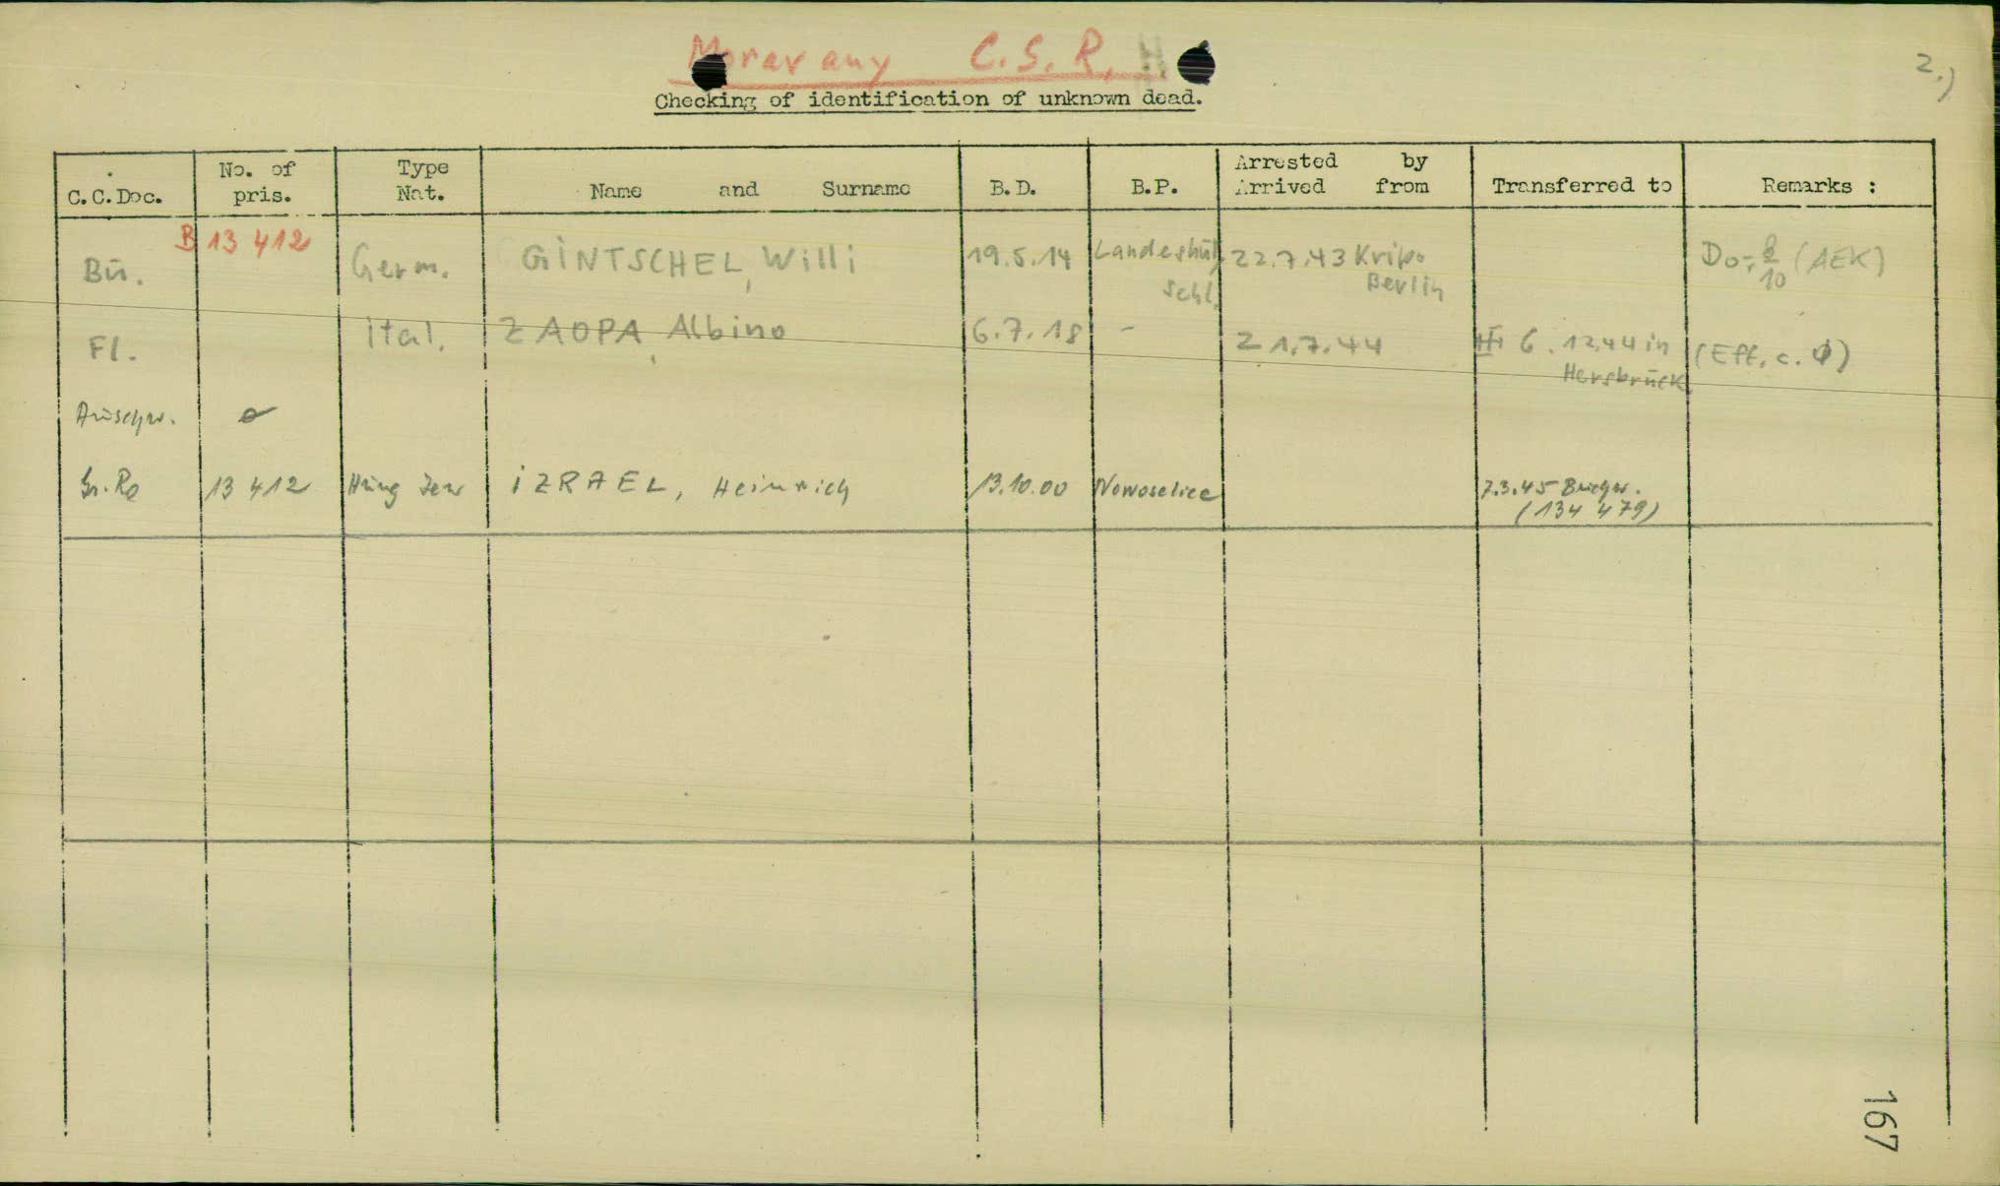 Moravany C.S.R.
2.)
Checking of identification of unknown dead.
C.C.Doc. No. of pris. Type Nat. Name and Surname B.D. B.P. Arrested by Arrived from Transferred to Remarks :
B 13 412
Bu. Germ. GINTSCHEL, Willi 19.5.14 Landeshut, Schl. 22.7.43 Kripo Berlin (AEK)
Fl. ital. ZAOPA, Albino 6.7.18 - 21.7.44 6.12.44 in Hersbruck (Eff. c. )
Auschw.
Gr. Ro 13 412 Hung Jew IZRAEL, Heinrich 13.10.00 Nowoselice 7.3.45 Buchw. (134 479)
167